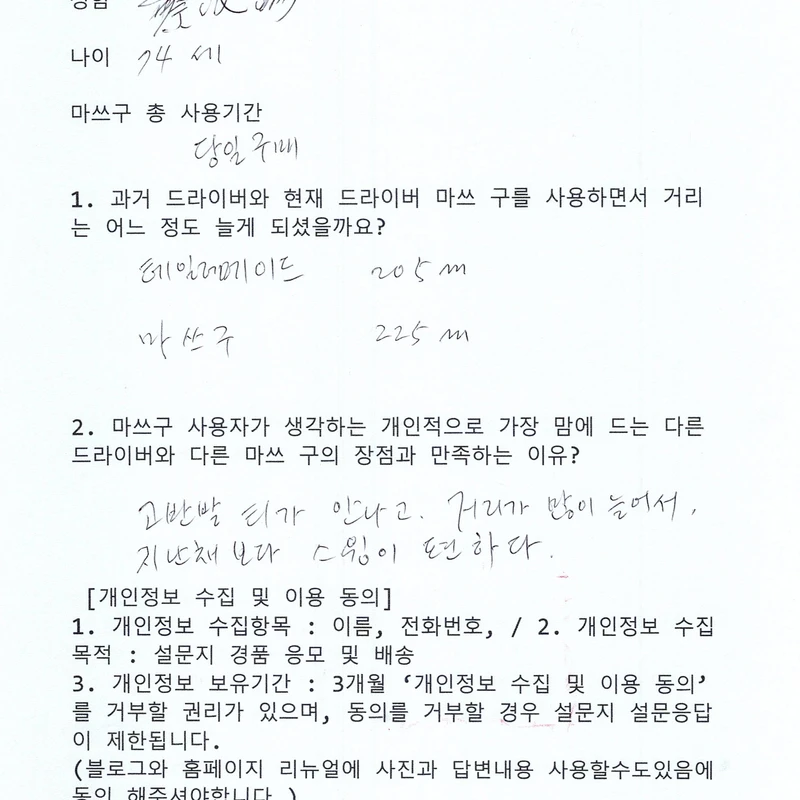 성함
나이 74 세
마쓰구 총 사용기간
당일 구매
1. 과거 드라이버와 현재 드라이버 마쓰 구를 사용하면서 거리
는 어느 정도 늘게 되셨을까요?
테일러메이드 205 m
마쓰구 225 m
2. 마쓰구 사용자가 생각하는 개인적으로 가장 맘에 드는 다른
드라이버와 다른 마쓰 구의 장점과 만족하는 이유?
고반발 티가 안나고. 거리가 많이 늘어서,
지난채 보다 스윙이 편하다.
[개인정보 수집 및 이용 동의]
1. 개인정보 수집항목 : 이름, 전화번호, / 2. 개인정보 수집
목적 : 설문지 경품 응모 및 배송
3. 개인정보 보유기간 : 3개월 ‘개인정보 수집 및 이용 동의’
를 거부할 권리가 있으며, 동의를 거부할 경우 설문지 설문응답
이 제한됩니다.
(블로그와 홈페이지 리뉴얼에 사진과 답변내용 사용할수도있음에
동의 해주셔야합니다.)